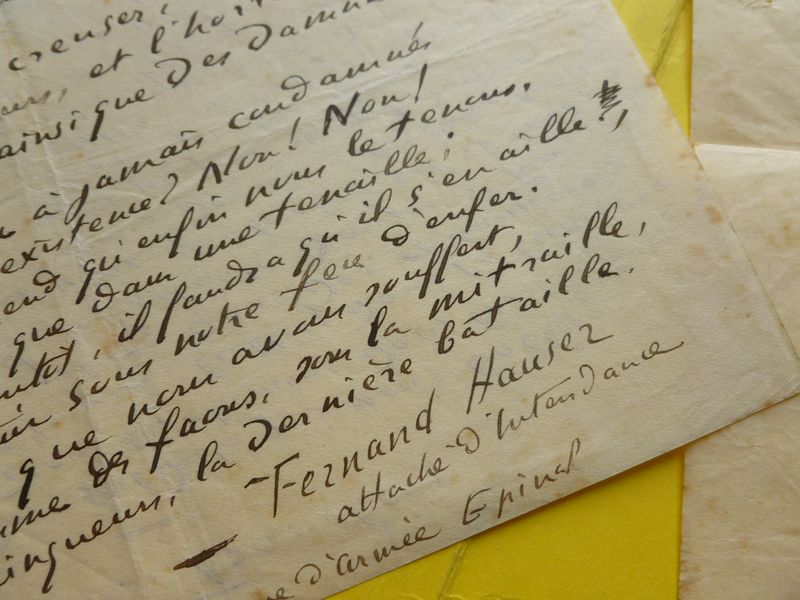 creuser,
et l'hor
ainsi que des damn
à jamais condamnés
existence? Non! Non!
end qu'enfin nous le tenons,
que dans une tenaille;
entôt, il faudra qu'il s'en aille,
sous notre feu d'enfer.
que nous avons souffert,
des facons, sous la mitraille,
ingueurs, la dernière bataille.
Fernand Hauser
attaché d'Intendance
d'armée Epinal